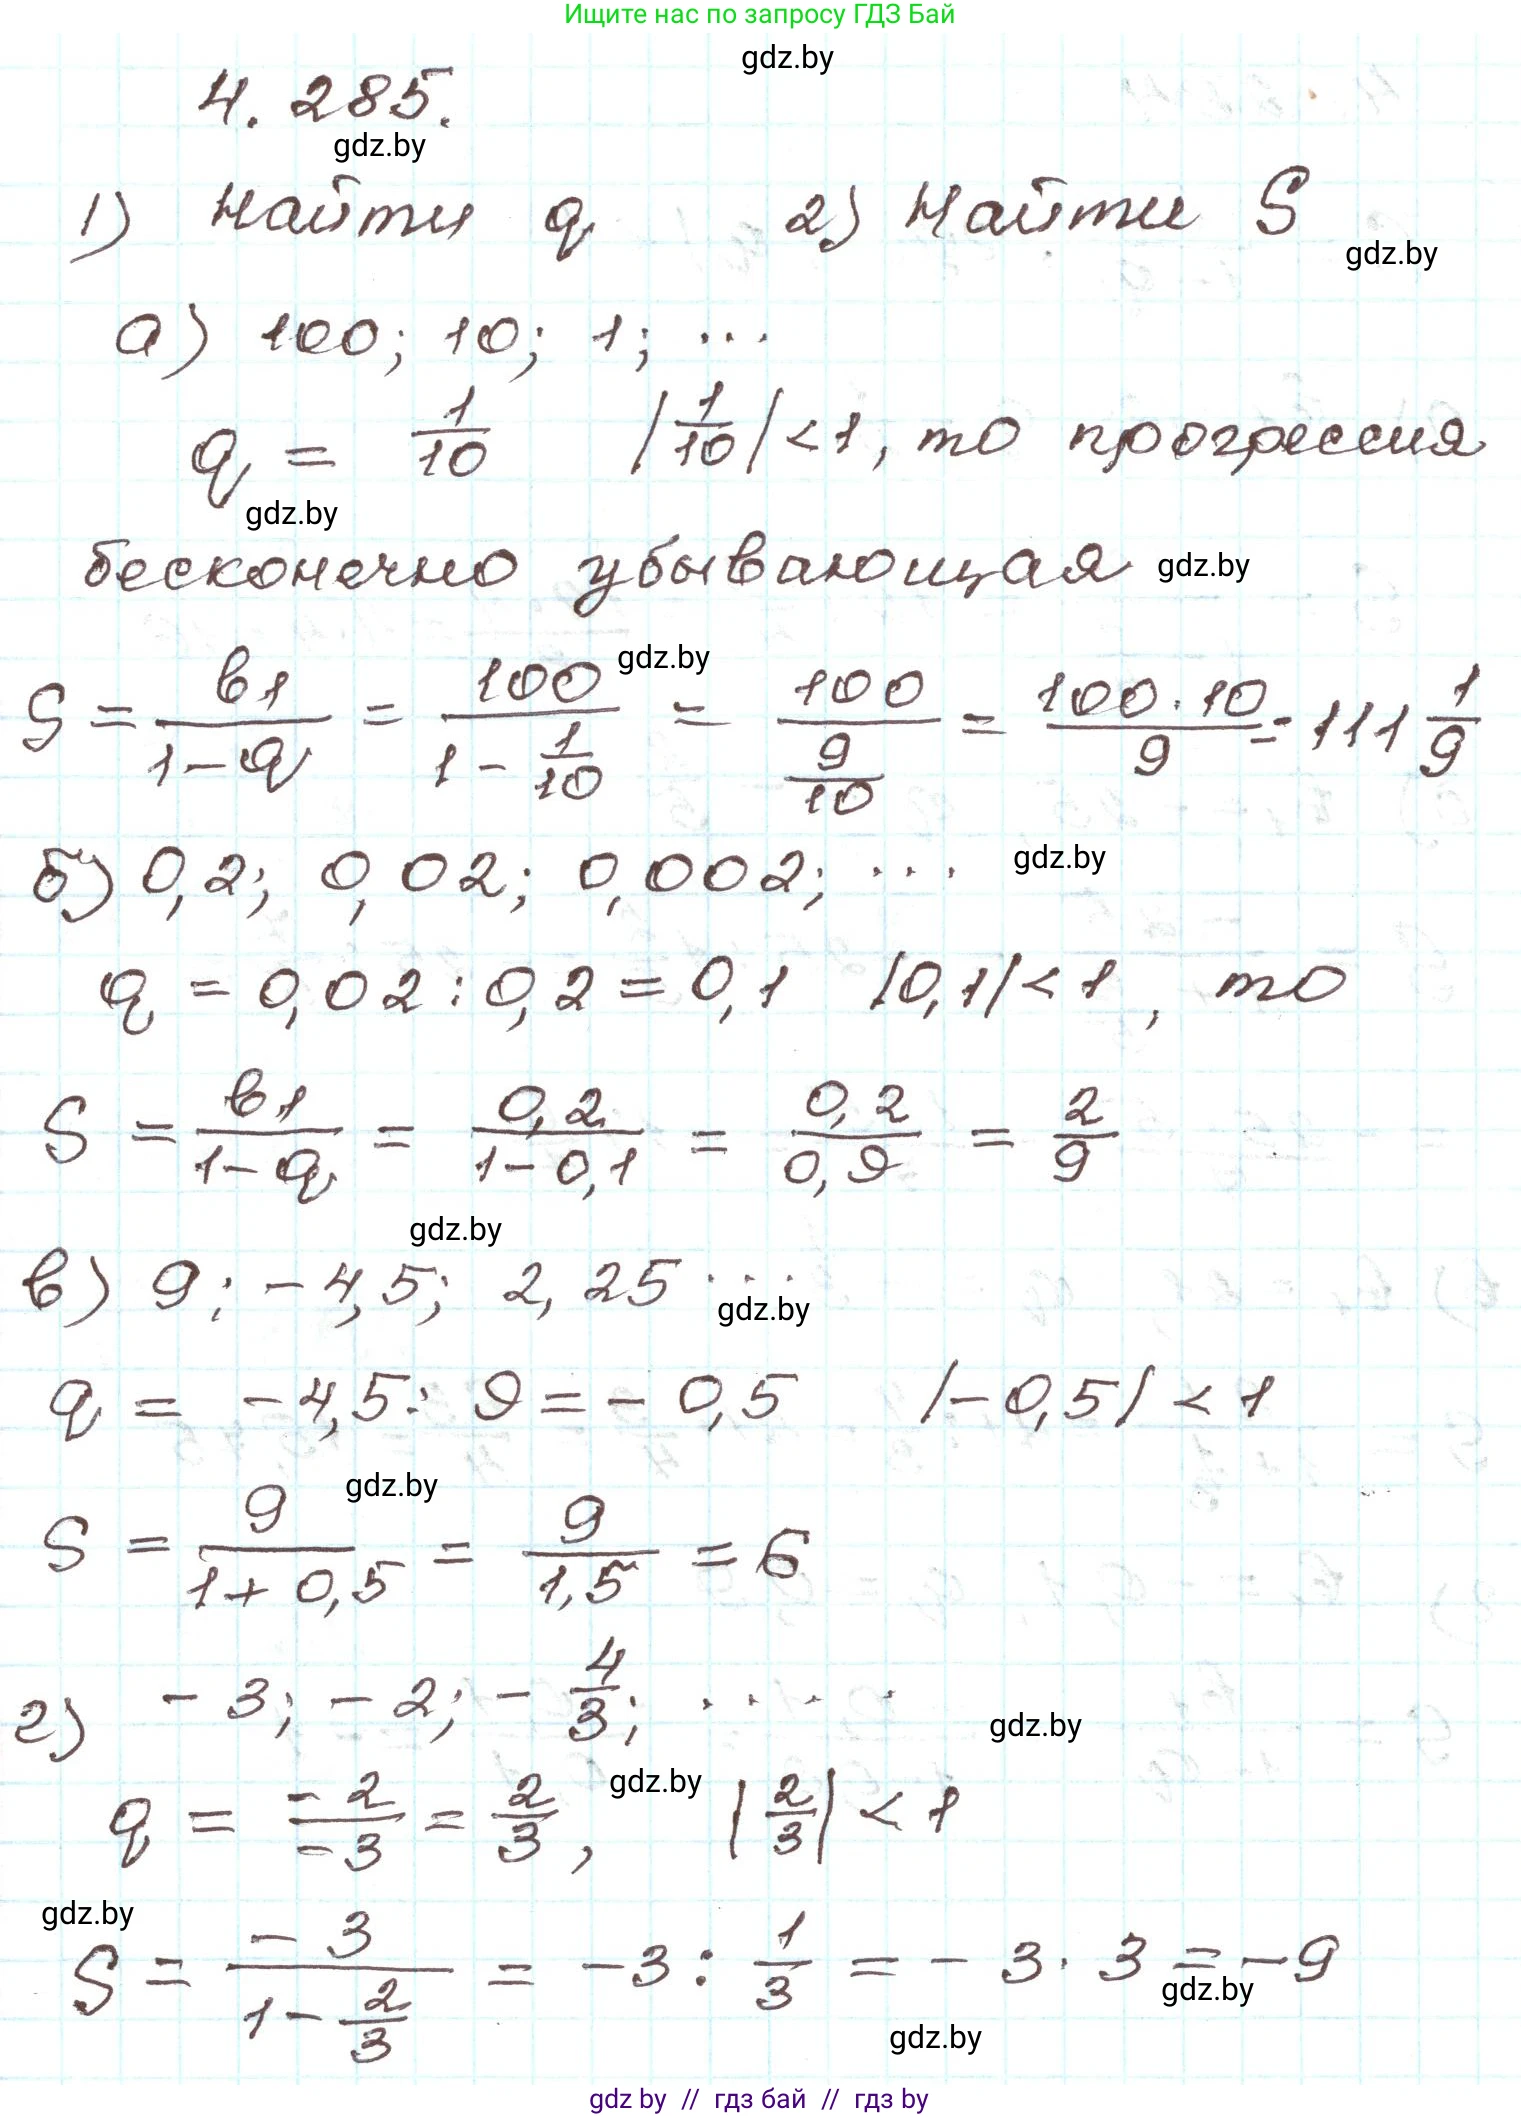 Ищите нас по запросу ГДЗ Бай
gdz.by
4. 285.
gdz.by
1) Найти q 2) Найти S
gdz.by
а) 100; 10; 1; ...
q = 1/10 |1/10| < 1, то прогрессия
gdz.by
бесконечно убывающая gdz.by
gdz.by
S = b1/(1-q) = 100/(1 - 1/10) = 100/(9/10) = (100 · 10)/9 = 111 1/9
б) 0,2; 0,02; 0,002; ... gdz.by
q = 0,02 : 0,2 = 0,1 |0,1| < 1, то
S = b1/(1-q) = 0,2/(1-0,1) = 0,2/0,9 = 2/9
gdz.by
в) 9; -4,5; 2,25 ...
gdz.by
q = -4,5 : 9 = -0,5 |-0,5| < 1
gdz.by
S = 9/(1+0,5) = 9/1,5 = 6
г) -3; -2; -4/3; ....
gdz.by
q = -2/-3 = 2/3, gdz.by |2/3| < 1
gdz.by
S = -3/(1 - 2/3) = -3 : 1/3 = -3 · 3 = -9
gdz.by
gdz.by
gdz by // гдз бай // гдз by